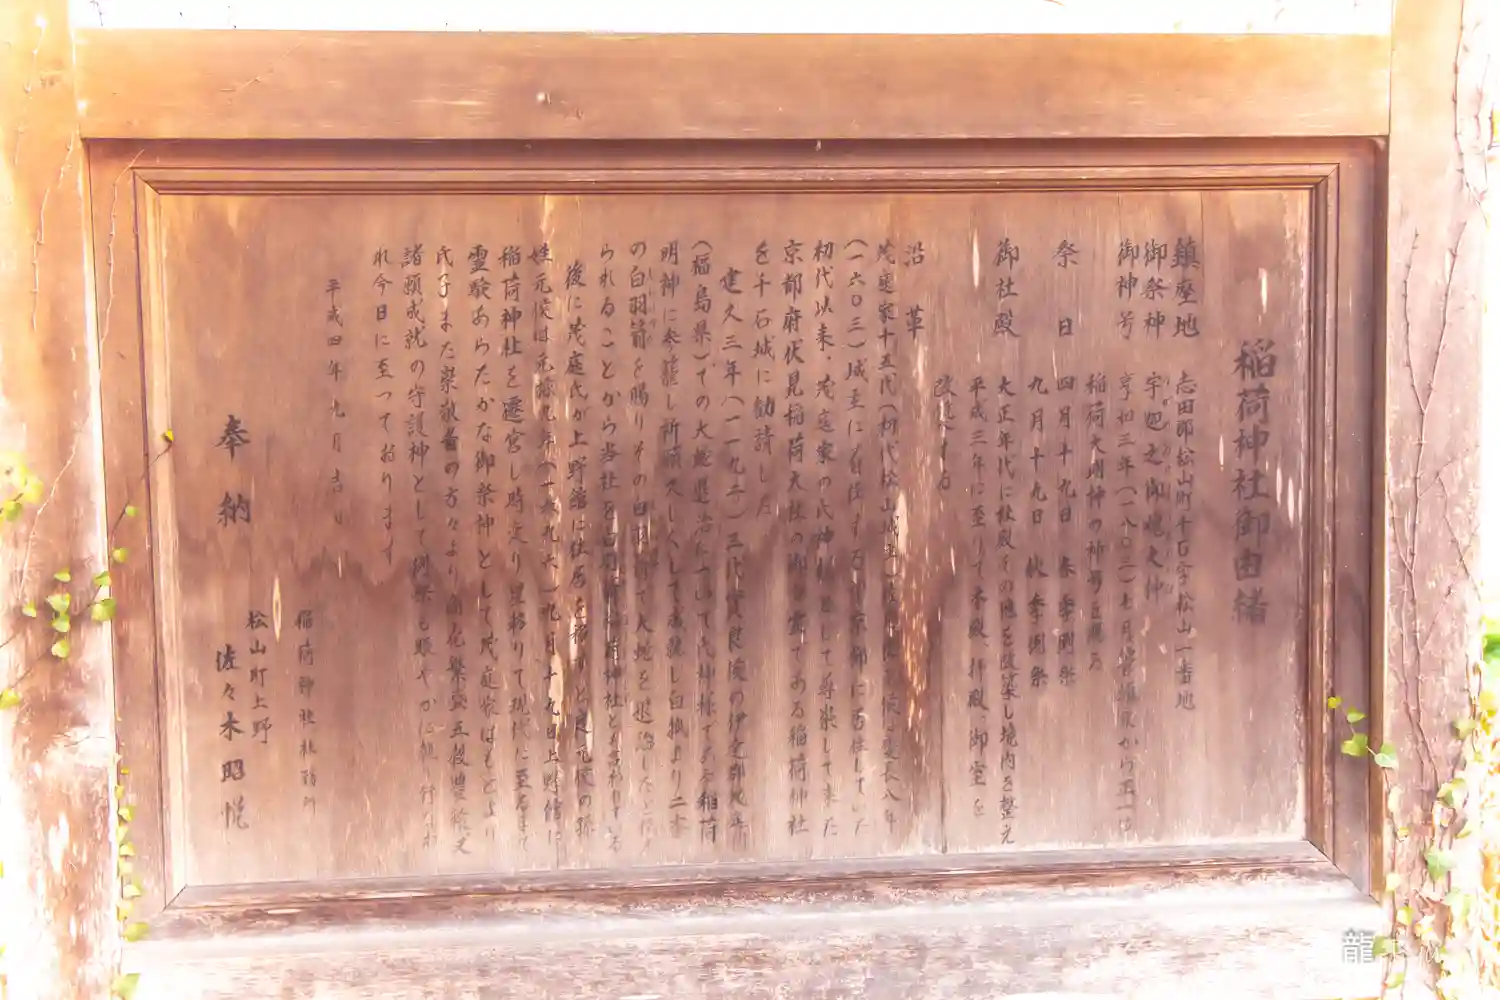 稲荷神社御由緒
鎮座地 志田郡松山町千石字松山一番地
御祭神 宇迦之御魂大神
御神号 享和三年(一八〇三)七月 から正一位
稲荷大明神の神号を賜る
祭 日 四月十九日 春季例祭
九月十九日 秋季例祭
御社殿 大正年代に社殿その他を改築し境内を整え
平成三年に至りて本殿、拝殿、御室を
改築する
沿 革
茂庭家十五代(初代松山城主) 慶長八年
(一六〇三)城主に 京都に居住していた
初代以来、茂庭家の氏神様として尊崇して来た
京都府伏見稲荷大社の御 霊である稲荷神社
を千石城に勧請した
建久三年(一一九二)三代實良侯の伊達郡茂庭
(福島県)での大蛇退治に 氏神様である稲荷
明神に参籠し祈願 白狐より二本
の白羽箭を賜りその白羽箭で大蛇を退治した
られることから当社を白羽箭稲荷神社とも
後に茂庭氏が上野館に住居を移すと良元侯の孫
姓元侯は元禄九年(一六九六)九月十九日上野館に
稲荷神社を遷宮し時定り星移りて現代に至る
霊験あらたかな御祭神として茂庭家はもとより
氏子また崇敬者の方々より商売繁盛五穀豊
諸願成就の守護神として例祭も賑やかに執り行なわ
れ今日に至っております
平成四年九月吉日
稲荷神社社務所
奉 納 松山町上野
佐々木昭悦
龍